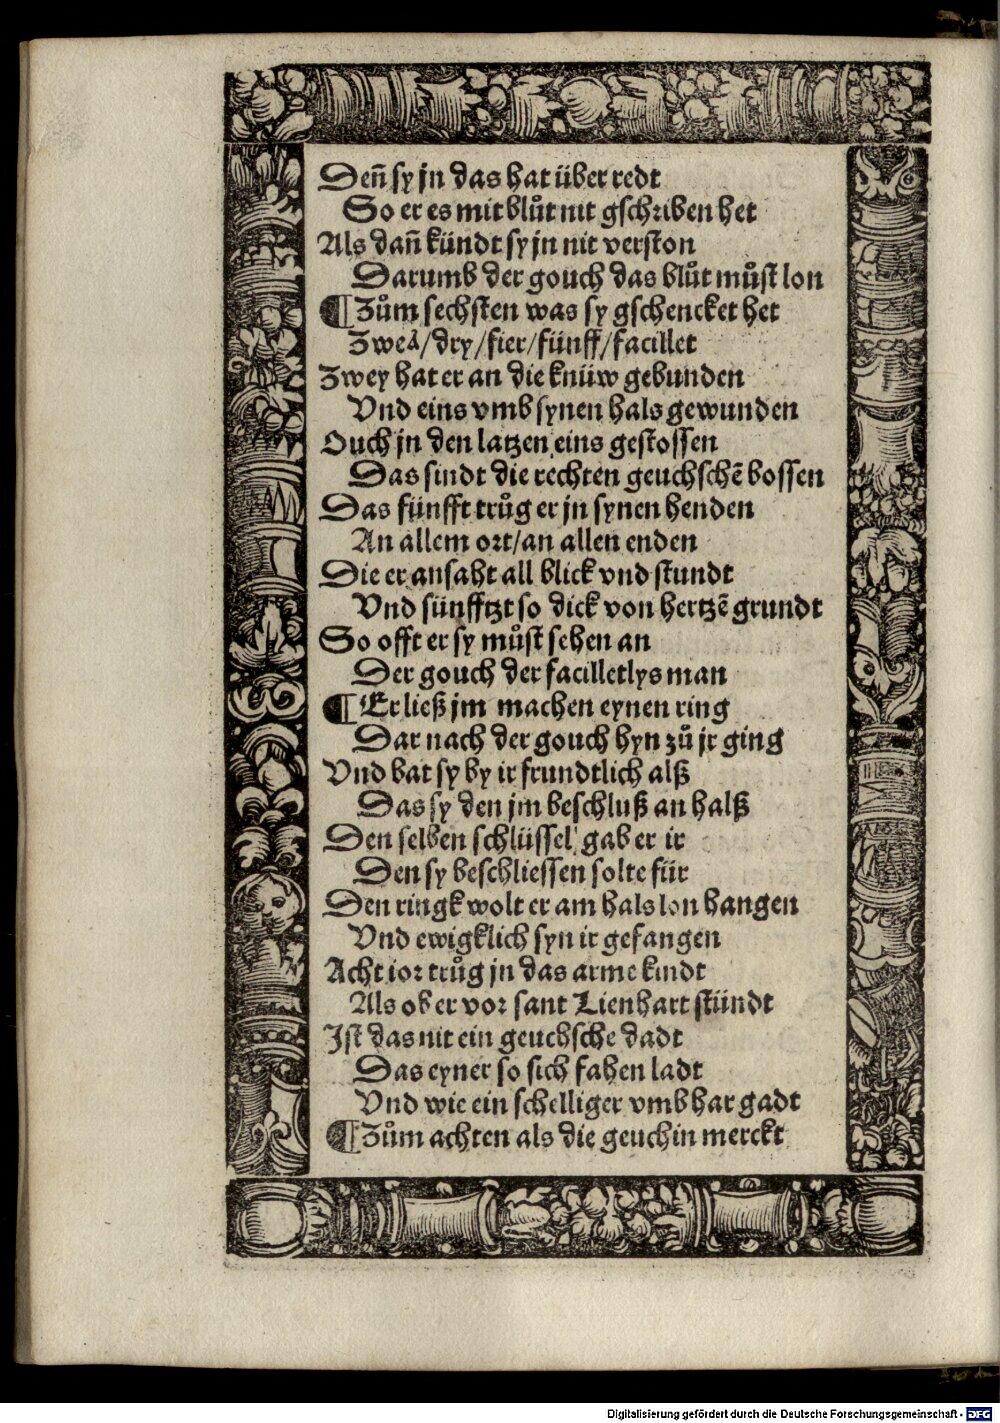 Deñ sy jn das hat über redt
So er es mit blůt nit gschriben het
Als dañ kündt sy jn nit verston
Darumb der gouch das blůt můst lon
¶ Zům sechsten was sy gschencket het
Zween/dry/fier/fünff/facillet
Zwey hat er an die knüw gebunden
Vnd eins vmb synen hals gewunden
Ouch jn den latzen eins gestossen
Das sindt die rechten geuchschẽ bossen
Das fünfft trůg er jn synen henden
An allem ort/an allen enden
Die er ansaht all blick vnd stundt
Vnd sünfftzt so dick von hertzẽ grundt
So offt er sy můst sehen an
Der gouch der facilletlys man
¶ Er ließ jm machen eynen ring
Dar nach der gouch hyn zů jr ging
Vnd bat sy by ir frundtlich alß
Das sy den jm beschluß an halß
Den selben schlüssel gab er ir
Den sy beschliessen solte für
Den ringk wolt er am hals lon hangen
Vnd ewigklich syn ir gefangen
Acht ior trůg jn das arme kindt
Als ob er vor sant Lienhart stündt
Jst das nit ein geuchsche dadt
Das eyner so sich fahen ladt
Vnd wie ein schelliger vmbhar gadt
¶ Zům achten als die geuchin merckt
Digitalisierung gefördert durch die Deutsche Forschungsgemeinschaft - DFG